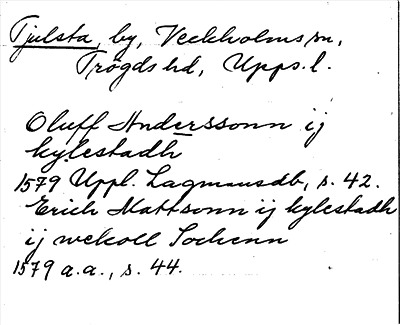 Tjulsta, by, Veckholms sn,
Trögds hd, Upps. l.
Oluff Anderssonn ij
kylestadh
1579 Uppl. Lagmansdb, s. 42.
Erich Mattsonn ij kylestadh
ij wekoll Sochenn
1579 a.a., s. 44.